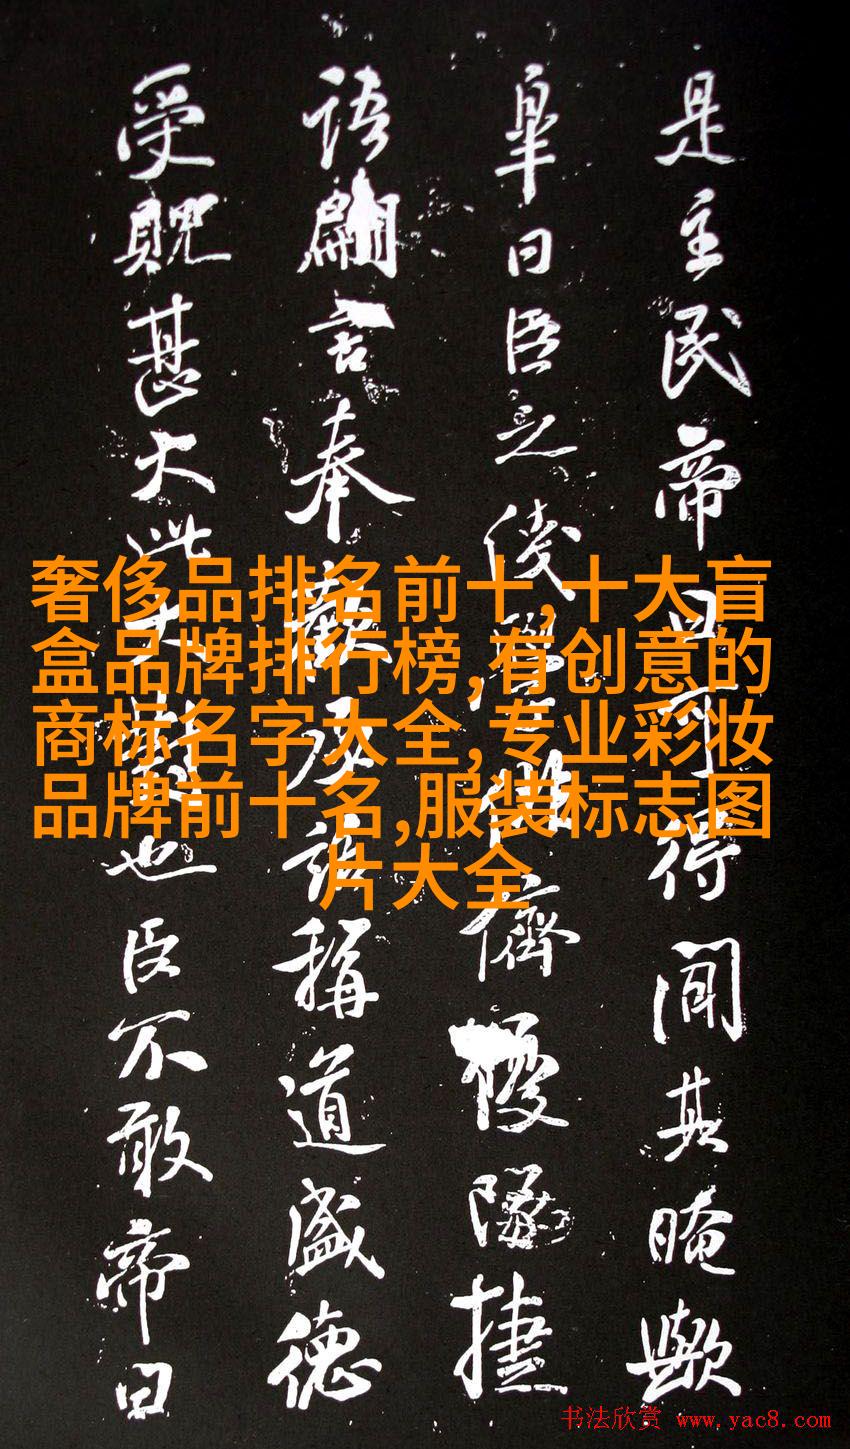 是主民帝曰可得聞其晻歟
皐曰臣之儕優隊捷
語翩言奉承語稱道盛德
受貺甚大也臣不敢帝曰
奢侈品排名前十,十大盲
盒品牌排行榜,有创意的
商标名字大全,专业彩妆
品牌前十名,服装标志图
片大全
书法欣赏 www.yac8.com